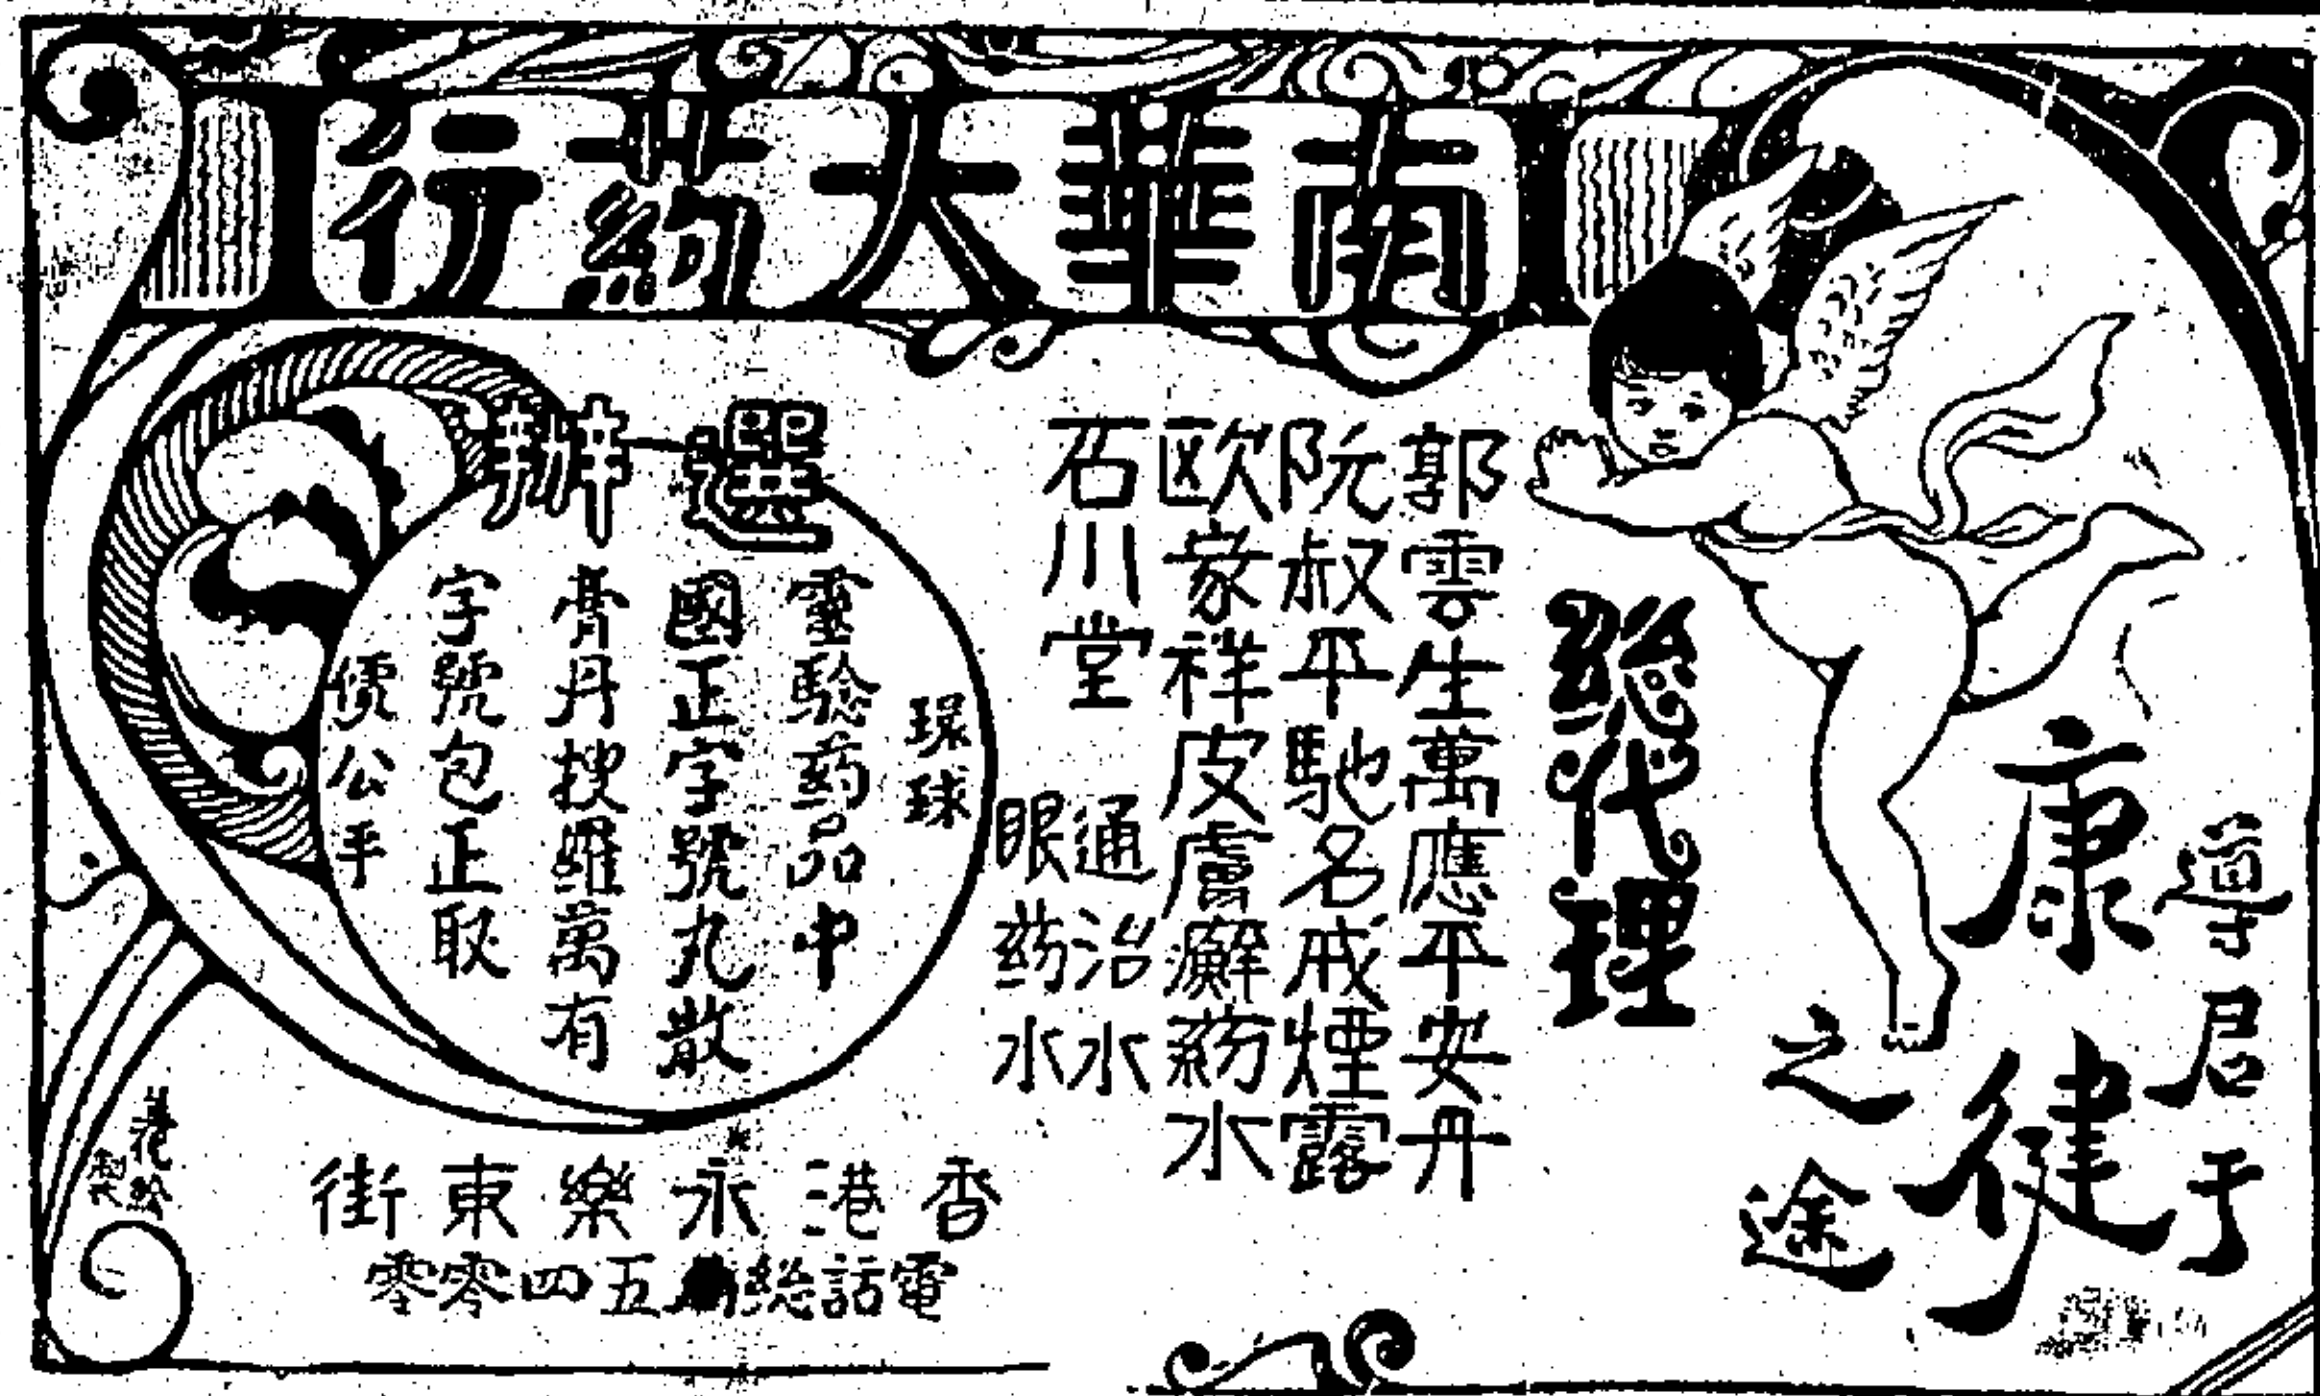 南華大药行
導君于
康健
之途
總代理
郭雲生萬應平安丹
阮叔平馳名戒煙露
欧家祥皮膚癬葯水
石川堂
通治水
眼葯水
選辦
環球
靈驗葯品中
國正字號丸散
膏丹搜羅萬有
字號包正取
價公平
香港永樂東街
電話總 五四零零